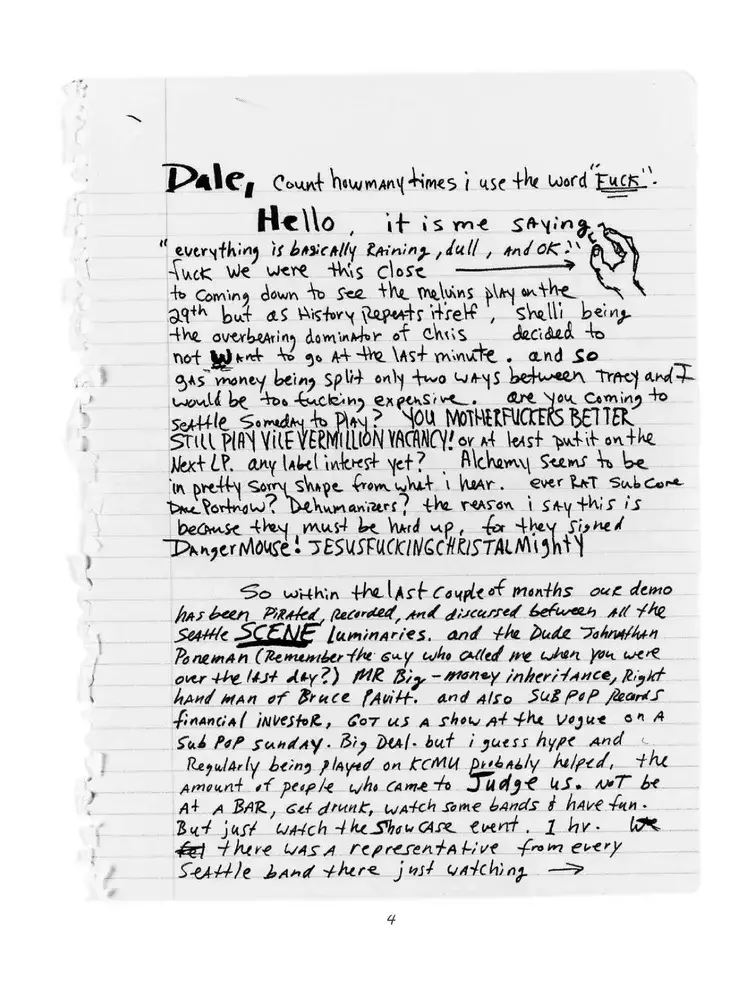 Dale, Count how many times i use the word "Fuck".
Hello, it is me saying
"everything is basically Raining, dull, and OK!"
fuck we were this close
to coming down to see the melvins play on the
29th but as History Repeats itself, Shelli being
the overbearing dominator of Chris decided to
not Want to go at the last minute. and so
gas money being split only two ways between Tracy and I
would be too fucking expensive. are you coming to
seattle Someday to Play? YOU MOTHERFUCKERS BETTER
STILL PLAY VILE VERMILLION VACANCY! or at least put it on the
Next LP. any label interest yet? Alchemy seems to be
in pretty sorry shape from what i hear. ever RAT Subcore
Dave Portnow? Dehumanizers? the reason i say this is
because they must be hard up, for they signed
DangerMouse! JESUSFUCKINGCHRISTALMighty
So within the last couple of months our demo
has been PiRAted, Recorded, and discussed between all the
Seattle SCENE luminaries. and the Dude Johnathan
Poneman (Remember the guy who called me when you were
over the last day?) MR Big-money inheritance, Right
hand man of Bruce Pavitt. and also SUB POP Records
financial investoR, GOT us a show at the Vogue on a
Sub Pop sunday. Big Deal. but i guess hype and
Regularly being played on KCMU probably helped, the
amount of people who came to Judge us. NOT be
at a BAR, Get drunk, watch some bands & have fun.
But just watch the Showcase event. 1 hr. We
fel there was a representative from every
Seattle band there just watching →
4